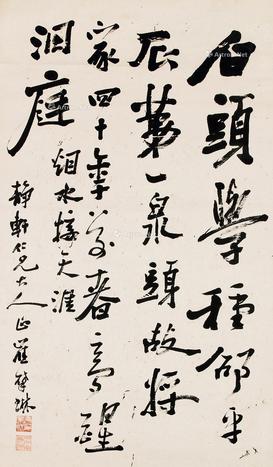 石頭學種邵平
瓜第一泉頭故將
家四十年前春夢醒
洞庭烟水接天涯
靜軒仁兄大人正 羅